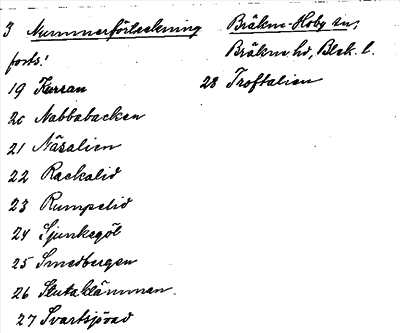 3 Nummerförteckning
forts.!
19 Korran
20 Nabbabacken
21 Näsalien
22 Rackalid
23 Rumpelid
24 Sjunkegöl
25 Smedbergen
26 Slutaklämman.
27 Svartsjövad
Bräkne-Hoby sn,
Bräkne hd, Blek. l.
28 Troftalien